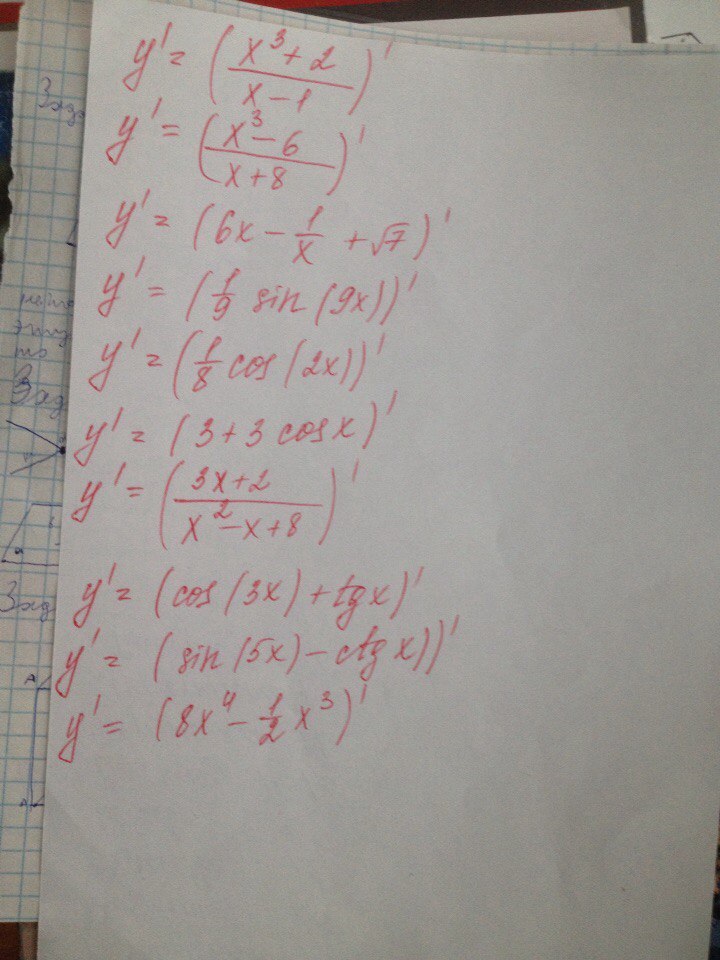 y' = (x³+2 / x-1)'
y' = (x³-6 / x+8)'
y' = (6x - 1/x + √7)'
y' = (1/9 sin(9x))'
y' = (1/8 cos(2x))'
y' = (3+3cosx)'
y' = (3x+2 / x²-x+8)'
y' = (cos(3x)+tgx)'
y' = (sin(5x)-ctgx))'
y' = (8x⁴ - 1/2 x³)'